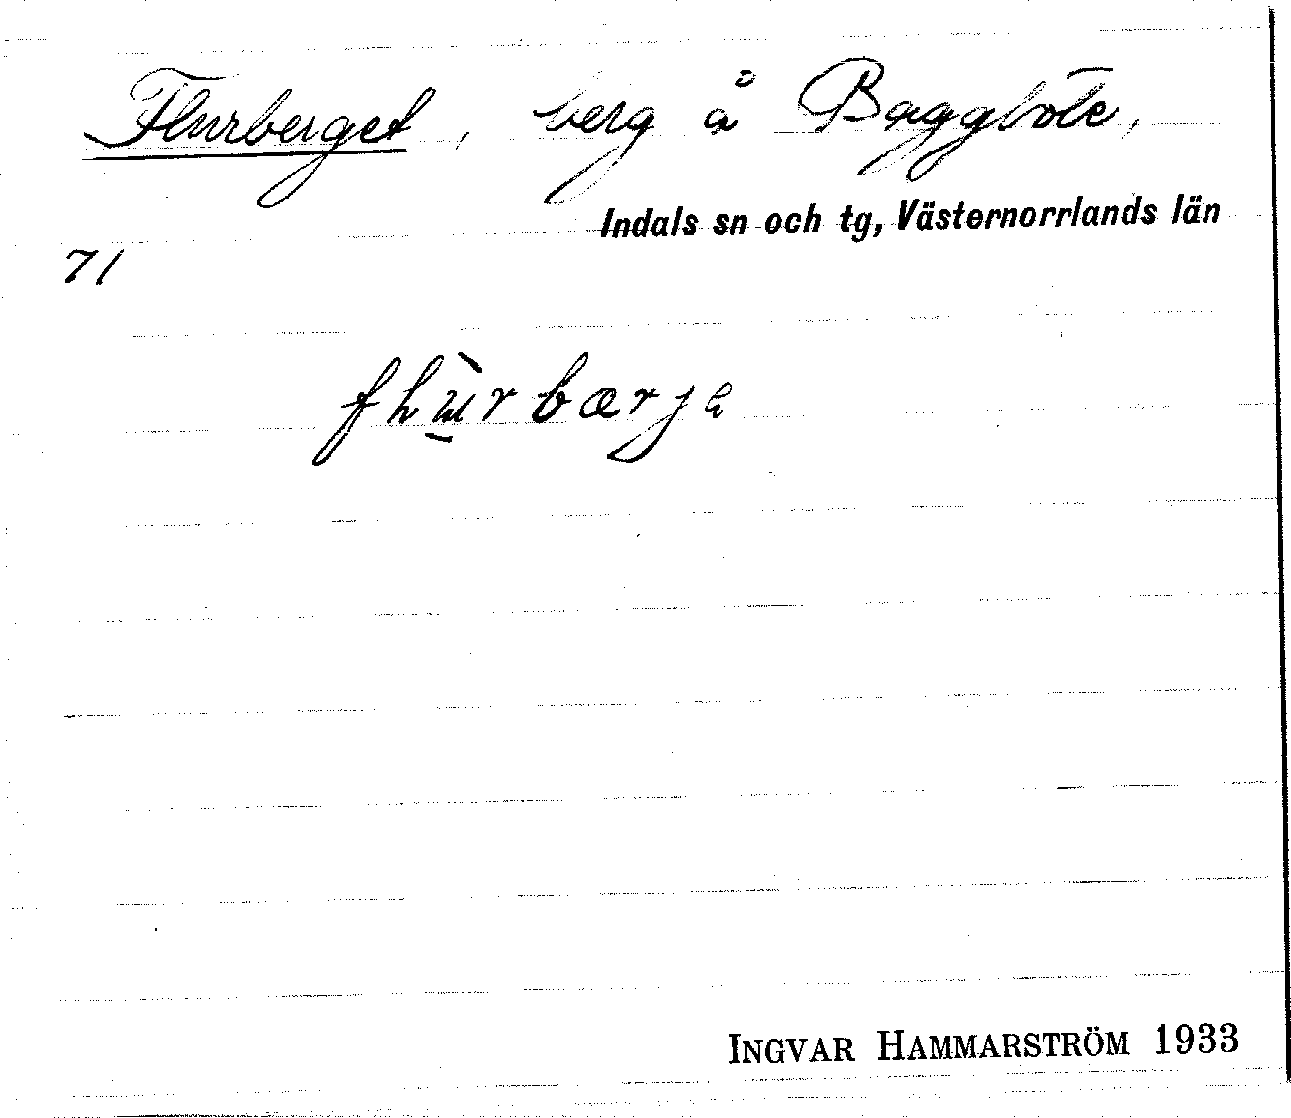 Flurberget, berg å Baggböle,
Indals sn och tg, Västernorrlands län
71
INGVAR HAMMARSTRÖM 1933